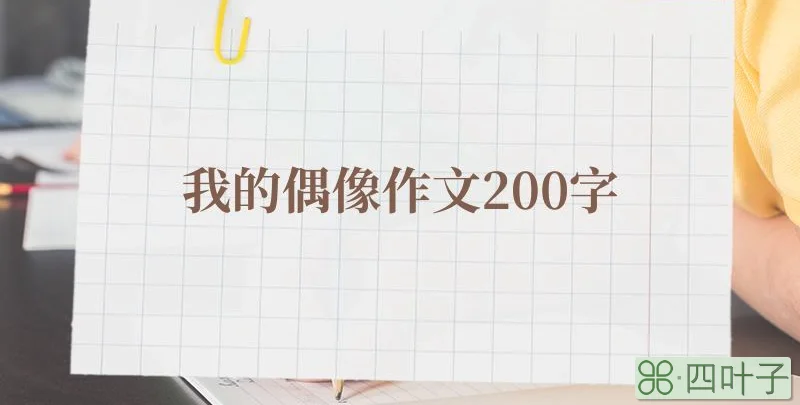 我的偶像作文200字
四叶子